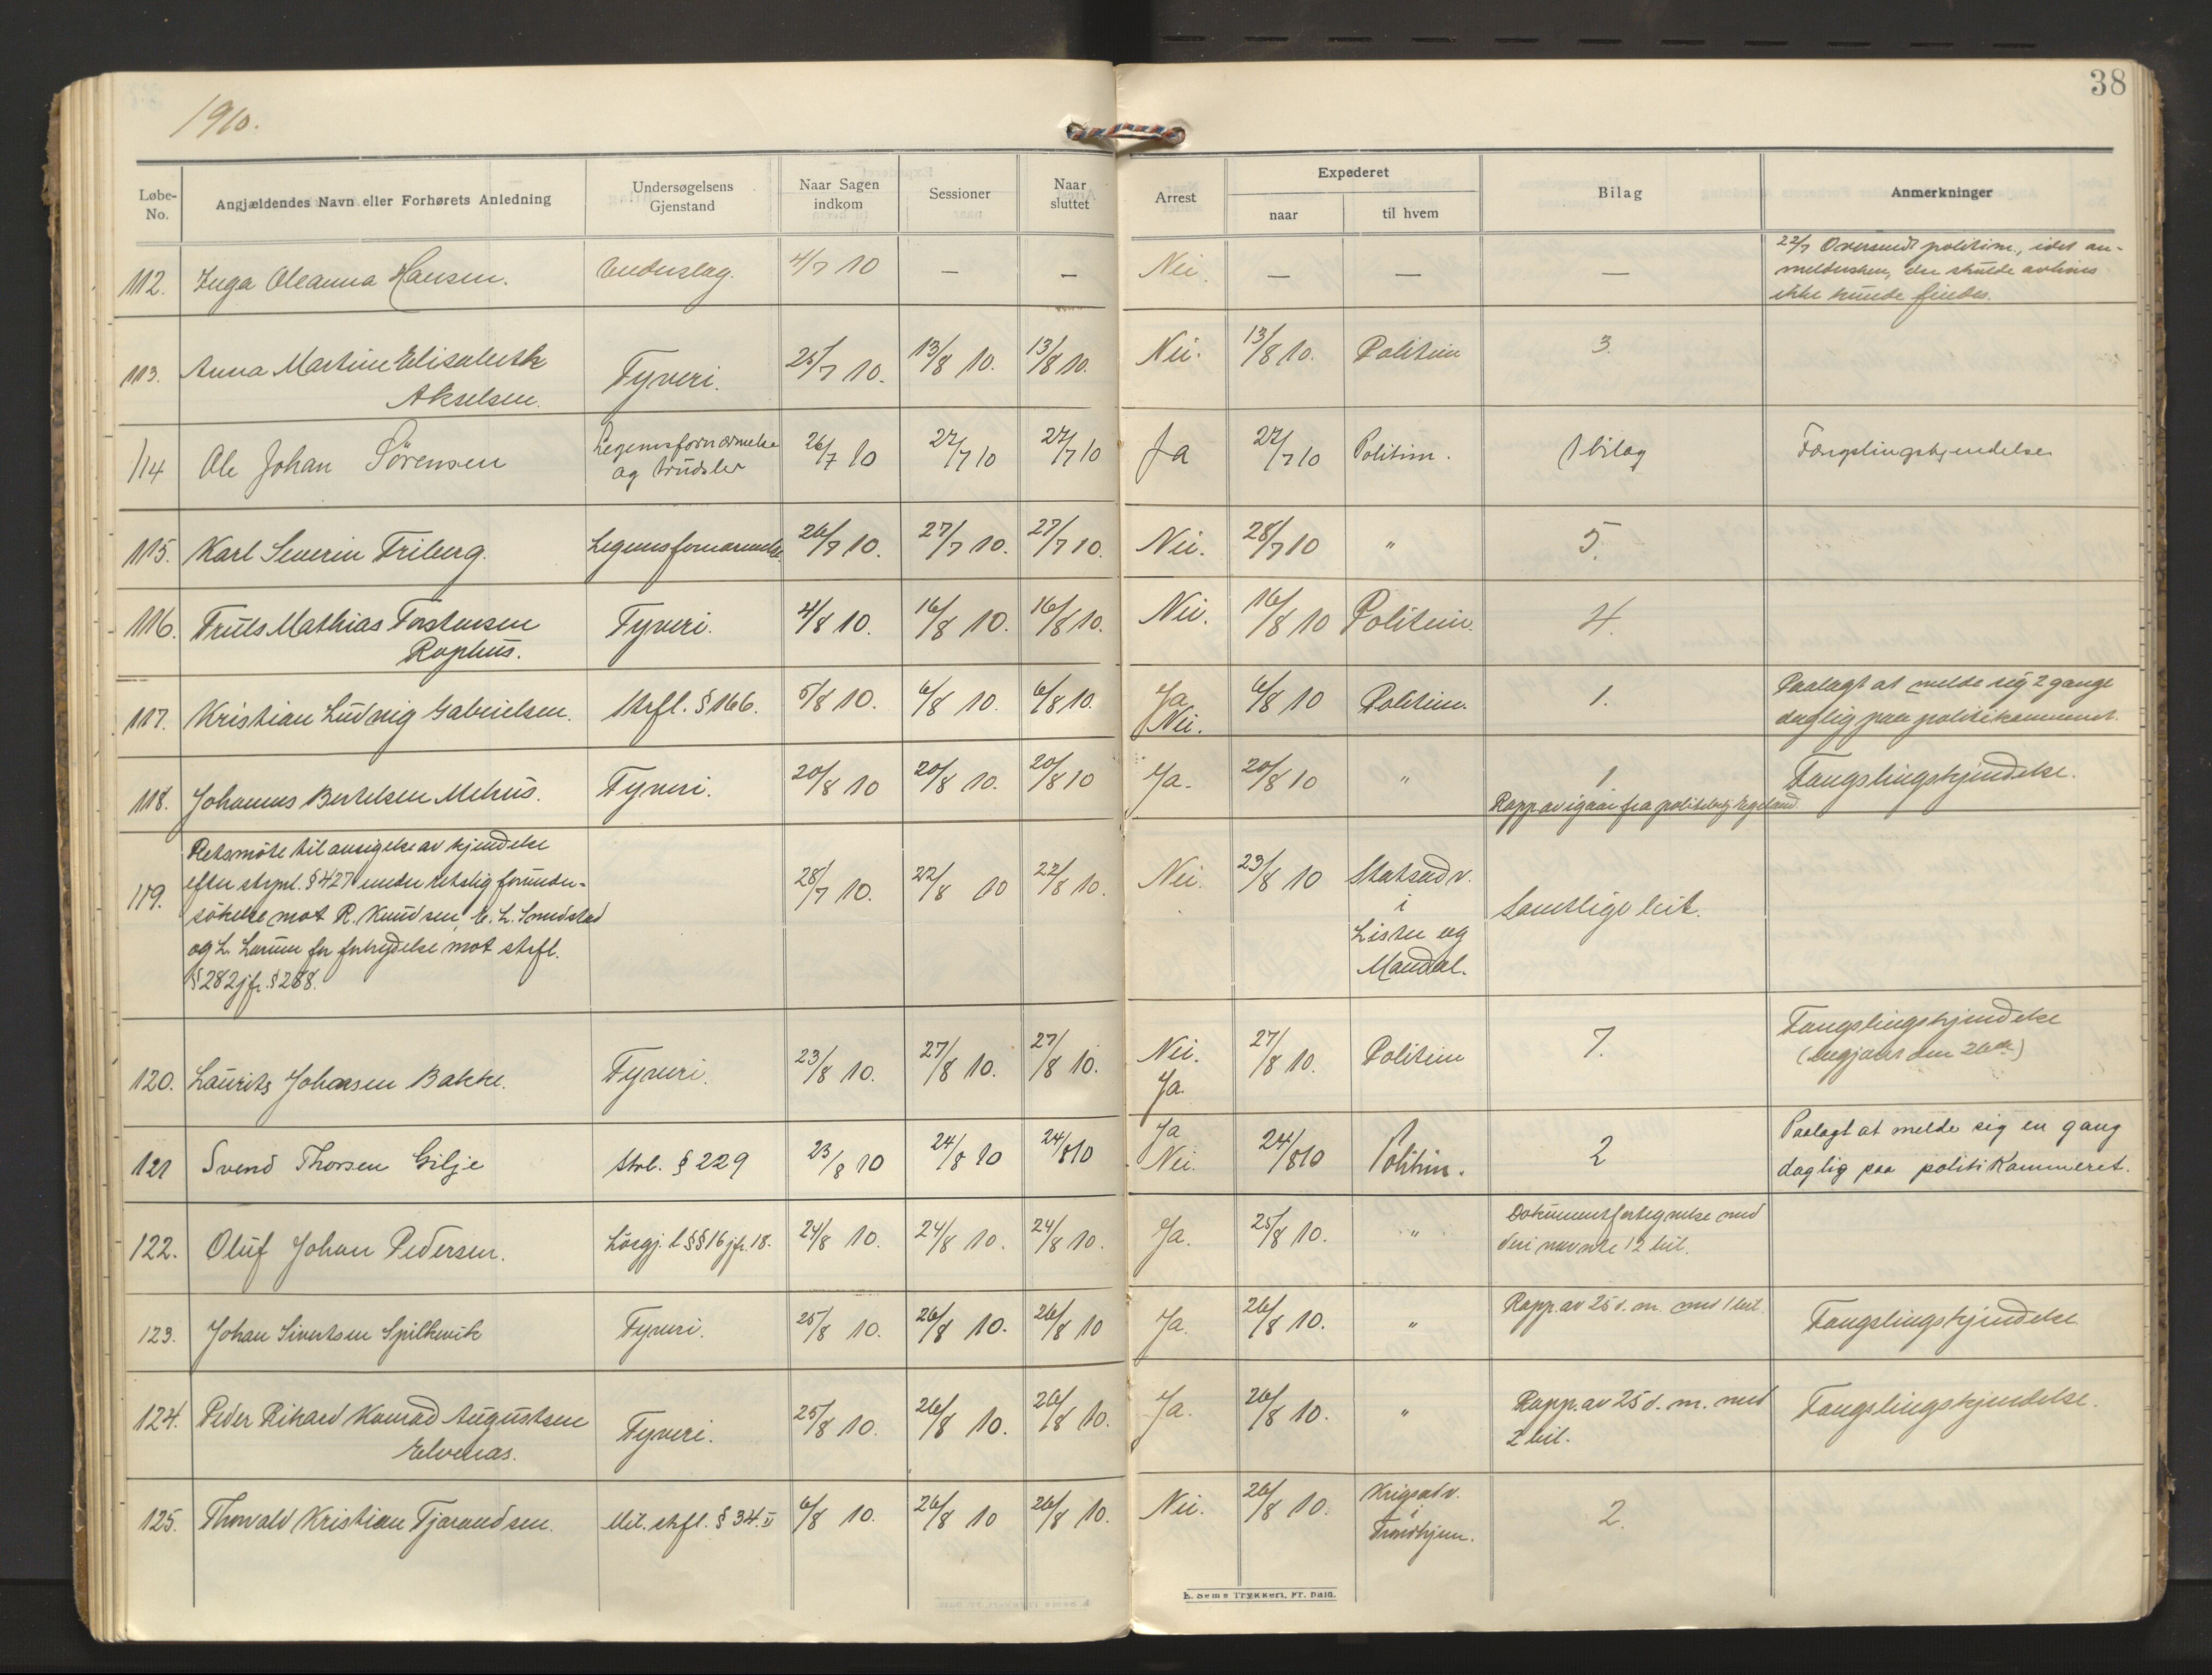 38
1910.
Løbe-No. Angjældendes Navn eller Forhørets Anledning Undersøgelsens Gjenstand Naar Sagen indkom Sessioner Naar sluttet Arrest Expederet naar til hvem Bilag Anmerkninger
112. Inga Oleanna Hansen. Underslag. 4/7 10 — — Nei. — — — 22/7 Oversendt politim., idet an-
meldersken, der skulde avhøres
ikke kunde findes.
113. Anna Martine Elisabeth
Akselsen. Tyveri. 25/7 10. 13/8 10. 13/8 10. Nei. 13/8 10. Politim 3.
114 Ole Johan Sörensen Legemsfornærmelse
og trudsler 26/7 10 27/7 10 27/7 10 Ja 27/7 10 Politim. 1 bilag Fængslingskjendelse
115. Karl Severin Friberg. Legemsfornærmelse. 26/7 10. 27/7 10. 27/7 10. Nei. 28/7 10 " 5.
116. Truls Mathias Torstensen
Rophus. Tyveri. 4/8 10. 16/8 10. 16/8 10. Nei. 16/8 10 Politim. 4.
117. Kristian Ludvig Gabrielsen. Strfl. § 166. 5/8 10. 6/8 10. 6/8 10. Ja
Nei. 6/8 10 Politim. 1. Paalagt at melde sig 2 gange
daglig paa politikammeret.
118. Johannes Bertelsen Mehus. Tyveri. 20/8 10 20/8 10. 20/8 10 Ja. 20/8 10 " 1.
Rapp. av igaar fra politibetj. Egeland. Fængslingskjendelse.
119. Retsmöte til avsigelse av kjendelse
efter strpl. § 427 under retslig forunder-
sökelse mot R. Knudsen, C. L. Smedstad
og L. Larum for forbrydelse mot strfl.
§ 282 jfr. § 288. 28/7 10. 22/8 10 22/8 10. Nei. 23/8 10 Statsadv.
i
Lister og
Mandal. Samtlige bil.
120. Laurits Johansen Bakke. Tyveri. 23/8 10. 27/8 10. 27/8 10. Nei.
Ja. 27/8 10. Politim 7. Fængslingskjendelse
(avgjort den 26de)
121 Svend Thorsen Gilje Strl. § 229 23/8 10 24/8 10 24/8 10 Ja
Nei. 24/8 10 Politim. 2 Paalagt at melde sig en gang
daglig paa politikammeret.
122. Oluf Johan Pedersen. Lösgj. l §§ 16 jfr. 18. 24/8 10. 24/8 10. 24/8 10. Ja. 25/8 10. " Dokumentfortegnelse med
deri nævnte 12 bil.
123. Johan Sivertsen Spilkevik Tyveri. 25/8 10. 26/8 10. 26/8 10 Ja. 26/8 10. " Rapp. av 25 d. m. med 1 bil. Fængslingskjendelse
124. Peder Rikard Konrad Augustsen
Elvenæs. Tyveri. 25/8 10. 26/8 10. 26/8 10. Ja. 26/8 10. " Rapp. av 25 d. m. med
2 bil. Fængslingskjendelse.
125. Thorvald Kristian Tjorandsen. Mil. strfl. § 34. II 6/8 10. 26/8 10 26/8 10. Nei. 26/8 10. Krigsadv.
i
Trondhjem. 2.
E. Sems Trykkeri, Fr.hald.